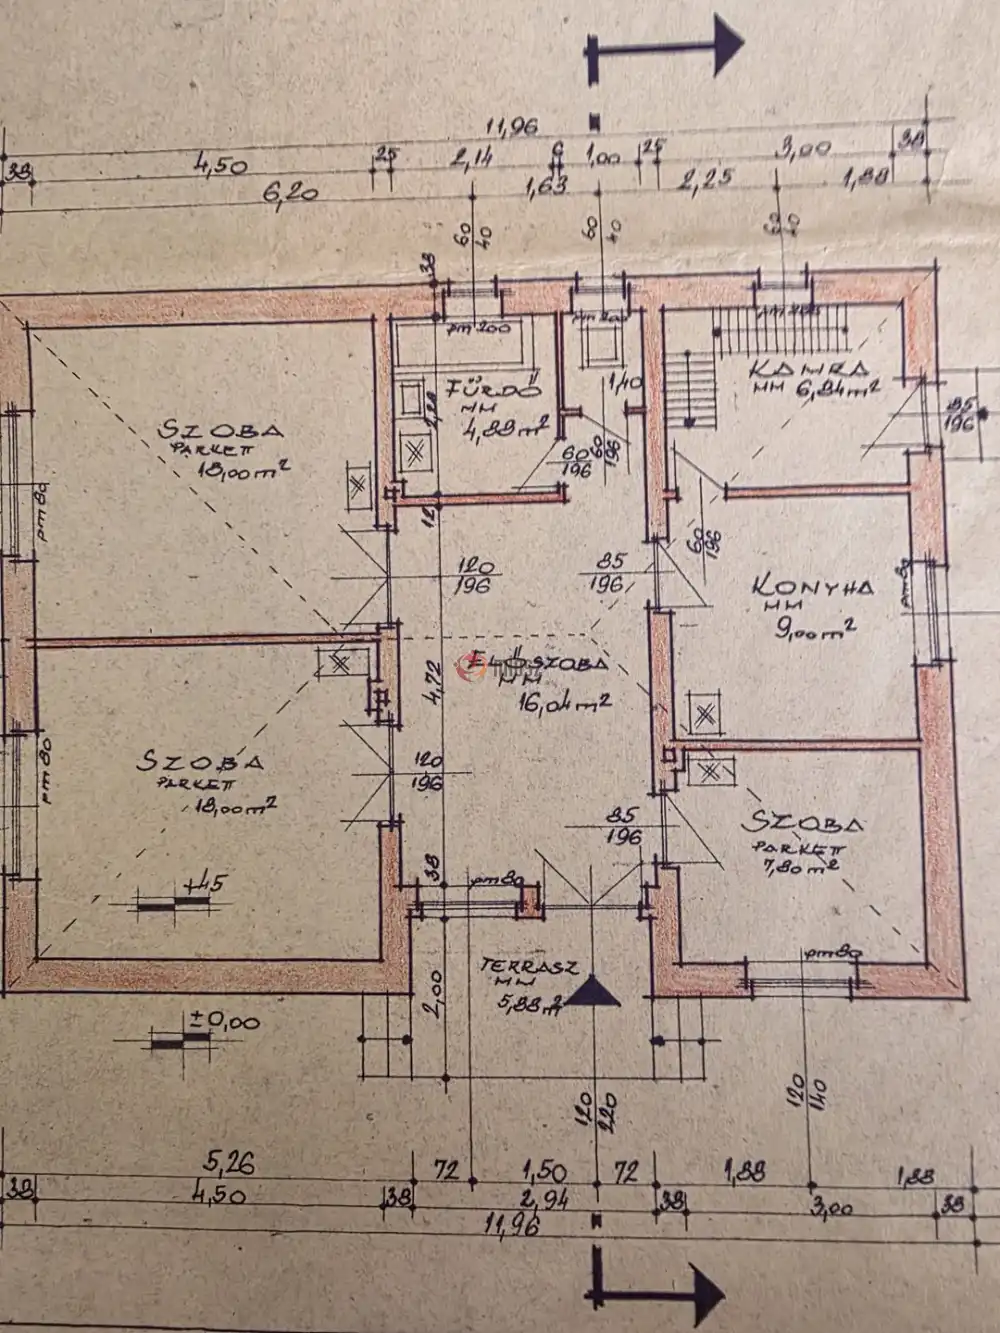 11,96
38 4,50 25 2,14 6 1,00 25 3,00 38
6,20 1,63 2,25 1,88
60 40
60 40
60 40
38
pm 200
KAMRA
MM 6,84 m²
1,40
FÜRDŐ
MM
4,88 m²
2,20
SZOBA
PARKETT
18,00 m²
85
196
60
196
60
196
pm 80
12
60
196
120
196
85
196
KONYHA
MM
9,00 m²
pm 80
ELŐSZOBA
MM
16,04 m²
4,72
SZOBA
PARKETT
18,00 m²
pm 80
120
196
85
196
SZOBA
PARKETT
7,80 m²
+45
38
pm 80
pm 80
TERRASZ
MM
5,88 m²
2,00
±0,00
120
220
120
140
5,26 72 1,50 72 1,88 1,88
38 4,50 38 2,94 38 3,00 38
11,96